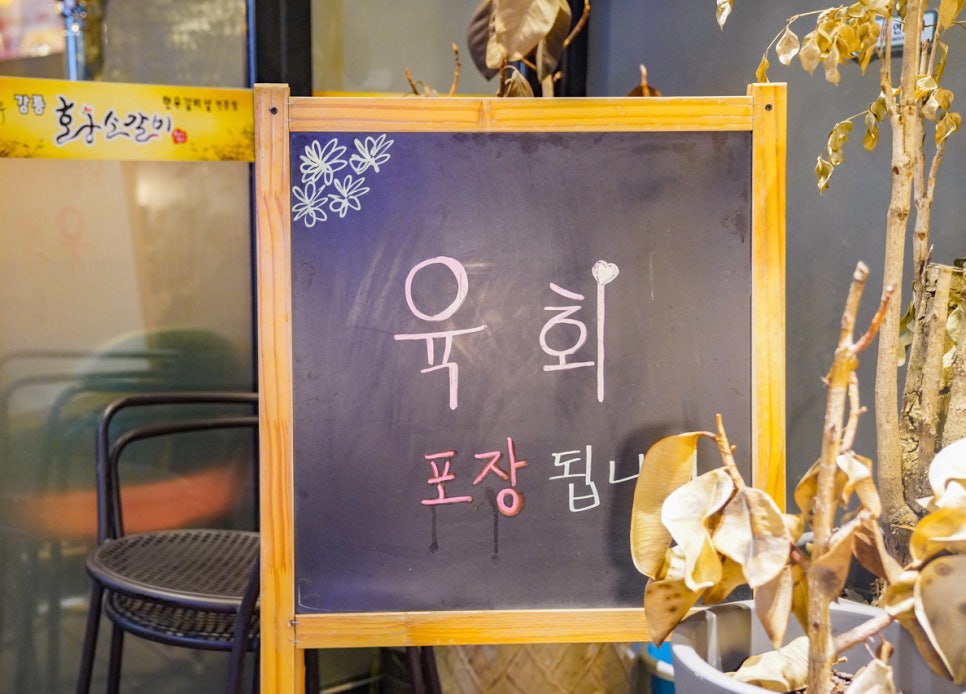 강릉
호궁소갈비
한우갈비살 전문점
육회
포장 됩니다